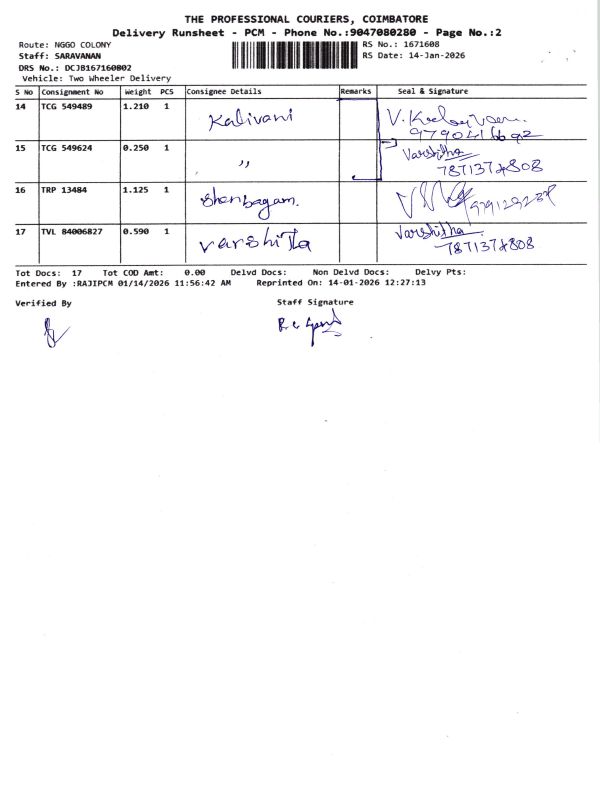 THE PROFESSIONAL COURIERS, COIMBATORE
Delivery Runsheet - PCM - Phone No.:9047080280 - Page No.:2
Route: NGGO COLONY
RS No.: 1671608
Staff: SARAVANAN
RS Date: 14-Jan-2026
DRS No.: DCJB167160802
Vehicle: Two Wheeler Delivery
S No Consignment No Weight PCS Consignee Details Remarks Seal & Signature
14 TCG 549489 1.210 1 Kalivani
15 TCG 549624 0.250 1 ,, Varshitha
16 TRP 13484 1.125 1 Shenbagam.
17 TVL 84006827 0.590 1 Varshitha Varshitha
Tot Docs: 17 Tot COD Amt: 0.00 Delvd Docs: Non Delvd Docs: Delvy Pts:
Entered By :RAJIPCM 01/14/2026 11:56:42 AM Reprinted On: 14-01-2026 12:27:13
Verified By Staff Signature